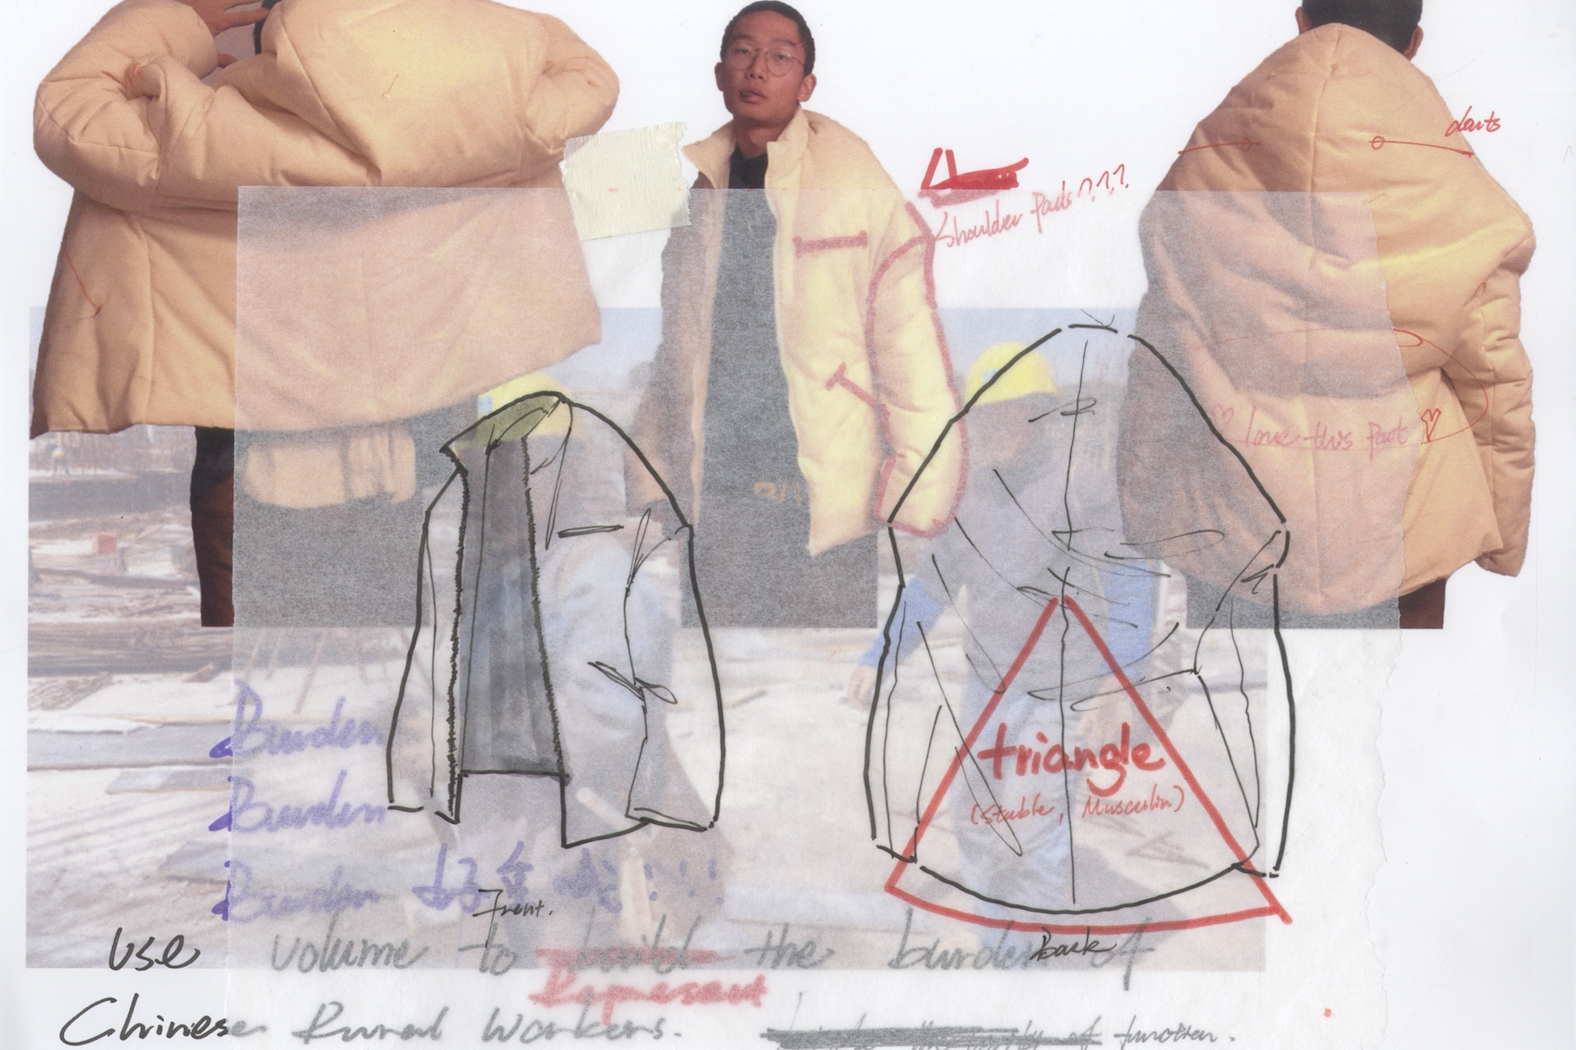 darts
Shoulder Pads???
love this part
triangle
(Stable, Musculin)
Burden
Burden
Burden 好重 !!!
Front.
Back
Use volume to build the burden of
Represent
Chinese Rural Workers.
function.